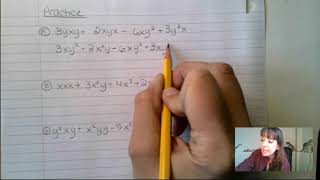 Practice
A) 3yxy + 2xyx - 6xy² + 3y²x
3xy² + 2x²y - 6xy² + 3xy
B) xxx + 3x² + 4x³ + 2
C) y²xy + x²yy - 5x²